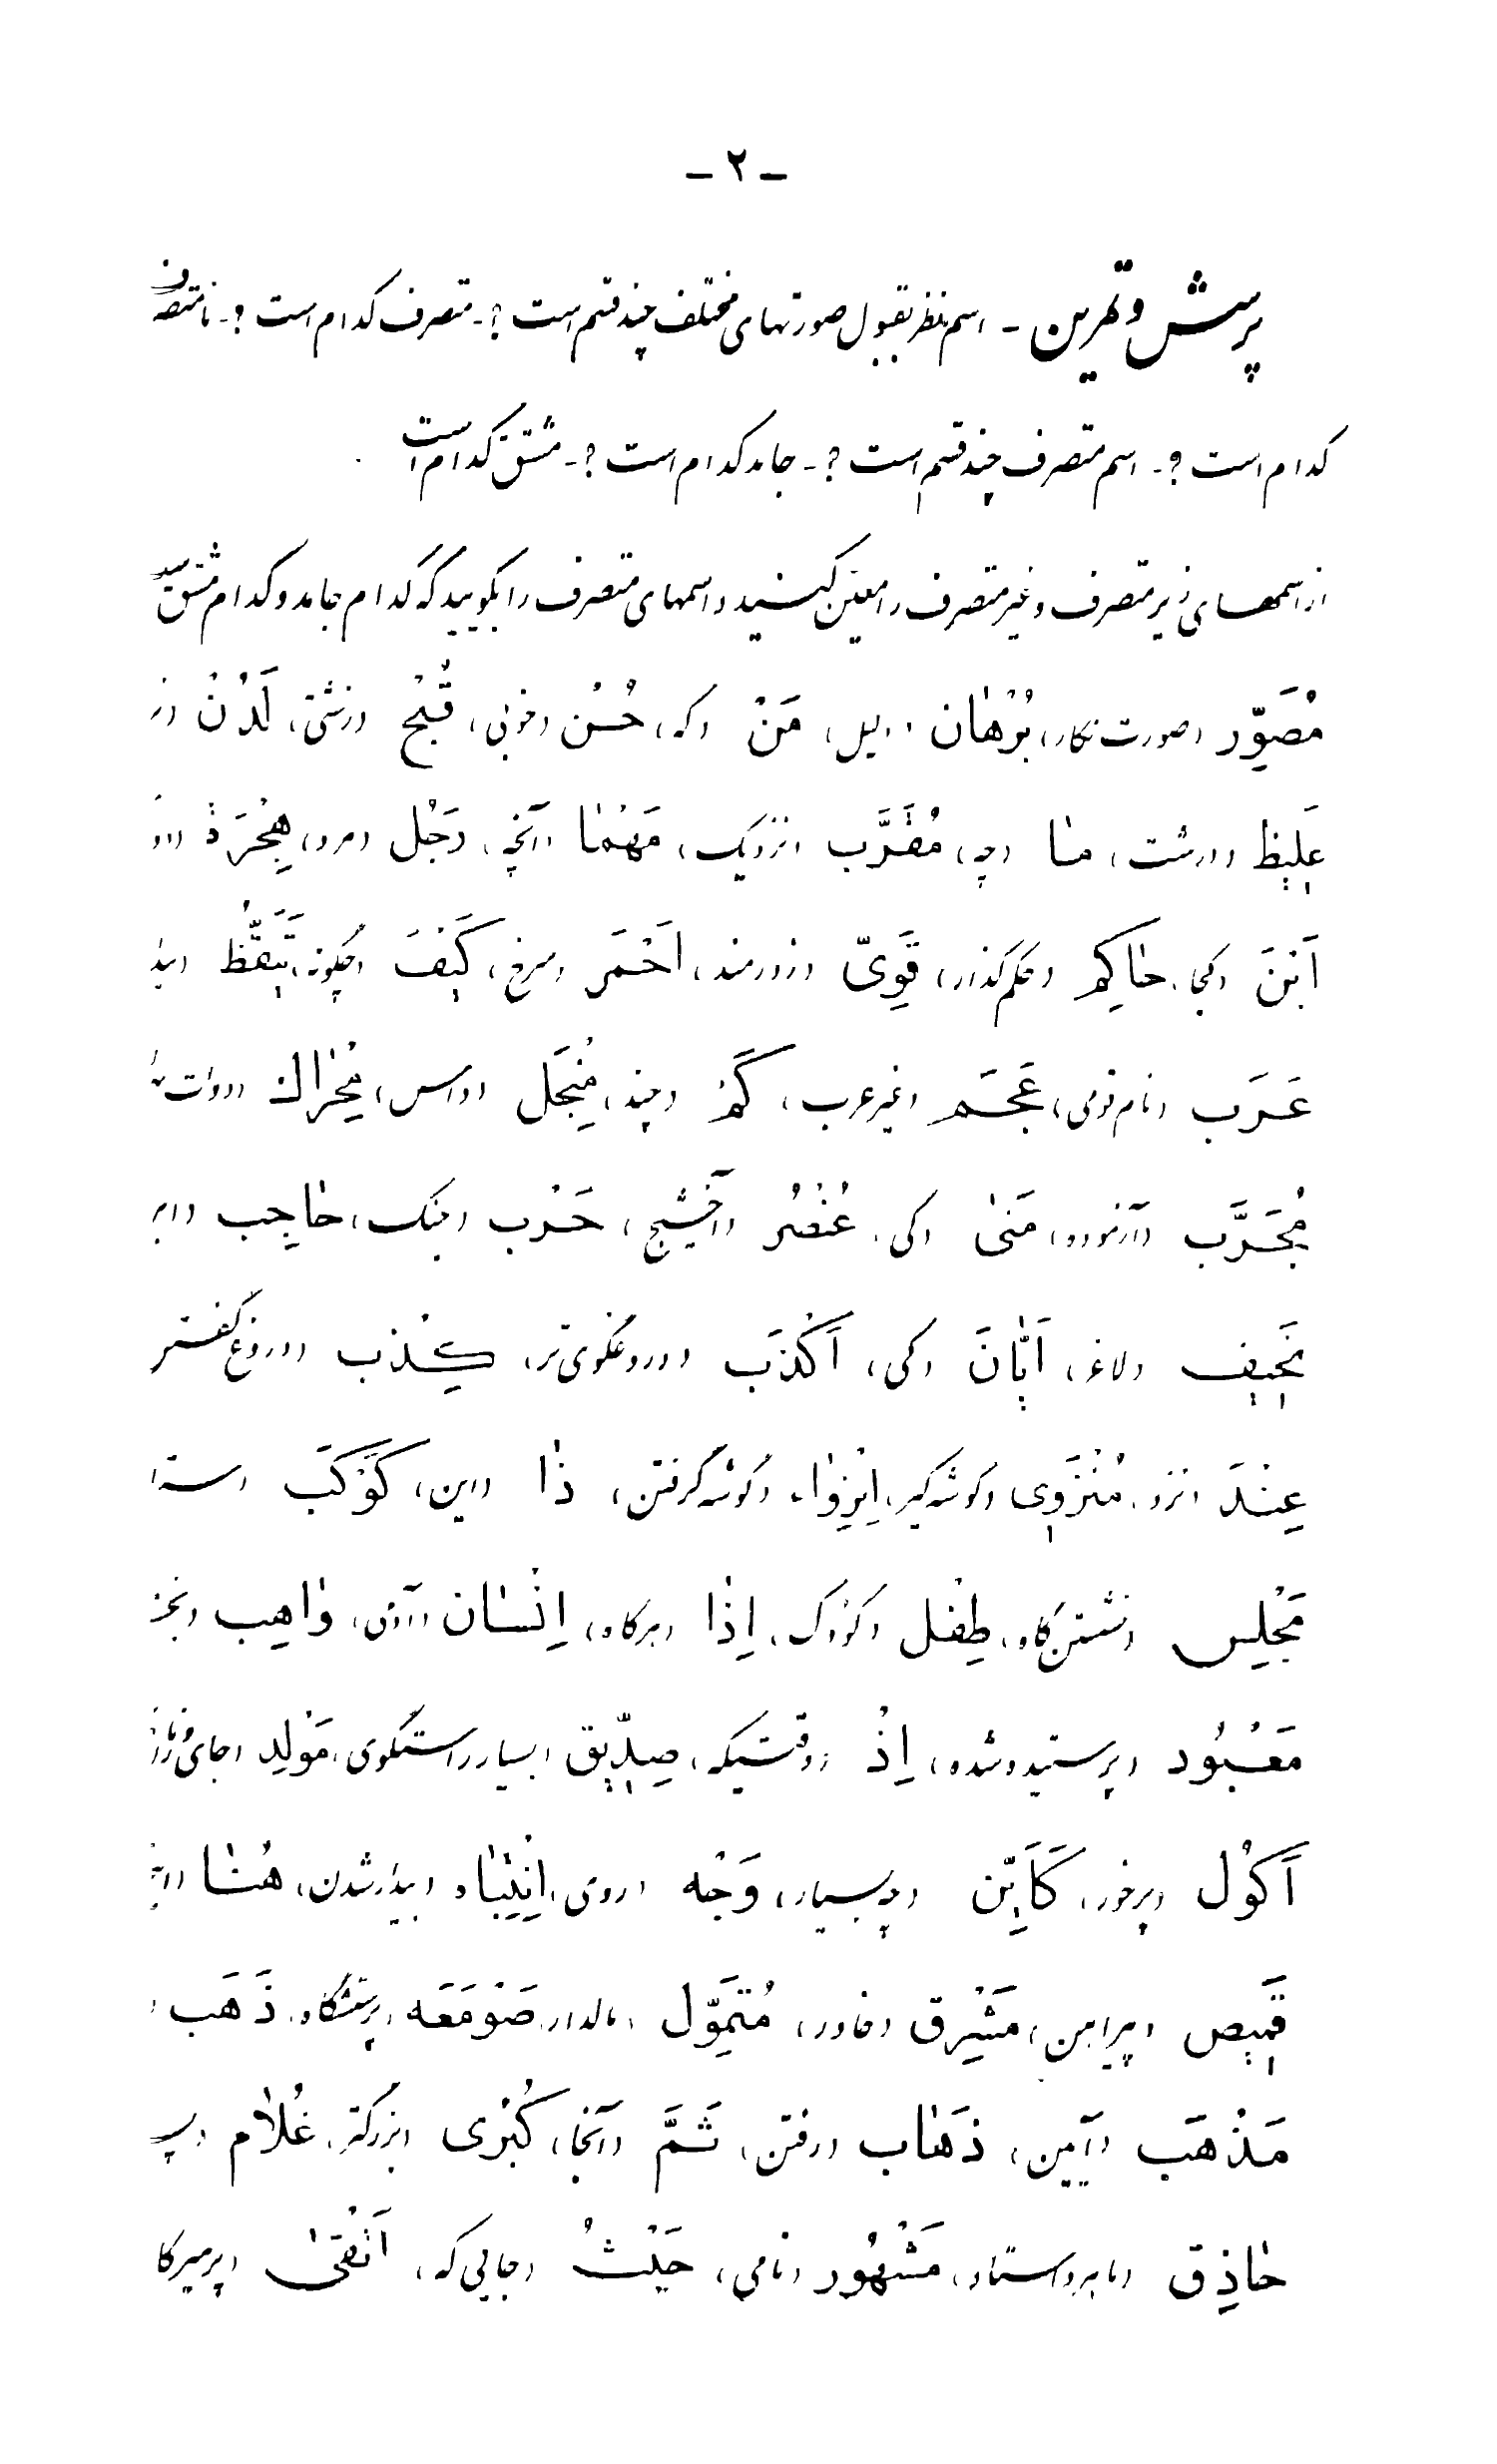 - ۲ -
پرسش و تمرین - اسم بنظر بقبول صورتهای مختلف چند قسم است ؟ - متصرف کدام است ؟ - نامتصرف
کدام است ؟ - اسم متصرف چند قسم است ؟ - جامد کدام است ؟ - مشتق کدام است
از اسمهای زیر متصرف و غیر متصرف را معین کنید و اسمهای متصرف را بگویید که کدام جامد و کدام مشتق
مُصَوِّر (صورت نگار)، بُرْهٰان (دلیل)، مَنْ (که)، حُسْن (خوبی)، قُبْح (زشتی)، لَدُنْ
غَلیظ (درشت)، مٰا (چه)، مُقَرَّب (نزدیک)، مَهْمٰا (آنچه)، رَجُل (مرد)، هِجْرَة
اَیْنَ (کجا)، حٰاکِم (حکم گذار)، قَوِیّ (زورمند)، اَحْمَر (سرخ)، کَیْفَ (چگونه)، تَیَقُّظ
عَرَب (نام قومی)، عَجَم (غیر عرب)، کَمْ (چند)، مِنْجَل (داس)، مِحْرٰاك
مُجَرَّب (آزموده)، مَتیٰ (کی)، عُنْصُر (آخشیج)، حَرْب (جنگ)، حٰاجِب
نَحیف (لاغر)، اَیّٰانَ (کی)، اَکْذَب (دروغگوی تر)، کِذْب (دروغ گفتن
عِنْدَ (نزد)، مُنْزَوی (گوشه گیر)، اِنْزِوٰاء (گوشه گرفتن)، ذٰا (این)، کَوْکَب
مَجْلِس (نشستن گاه)، طِفْل (کودک)، اِذٰا (هرگاه)، اِنْسٰان (آدمی)، وٰاهِب
مَعْبُود (پرستیده شده)، اِذْ (وقتیکه)، صِدّیق (بسیار راستگوی)، مَوْلِد (جای
اَکُول (پرخور)، کَاَیِّن (چه بسیار)، وَجْه (روی)، اِنْتِبٰاه (بیدار شدن)، هُنٰا
قَمیص (پیراهن)، مَشْرِق (خاور)، مُتَمَوِّل (مالدار)، صَوْمَعَه (پرستشگاه)، ذَهَب
مَذْهَب (آیین)، ذَهٰاب (رفتن)، ثَمَّ (آنجا)، کُبْرٰی (بزرگتر)، غُلٰام
حٰاذِق (ماهر و استاد)، مَشْهُور (نامی)، حَیْثُ (جایی که)، اَتْقیٰ